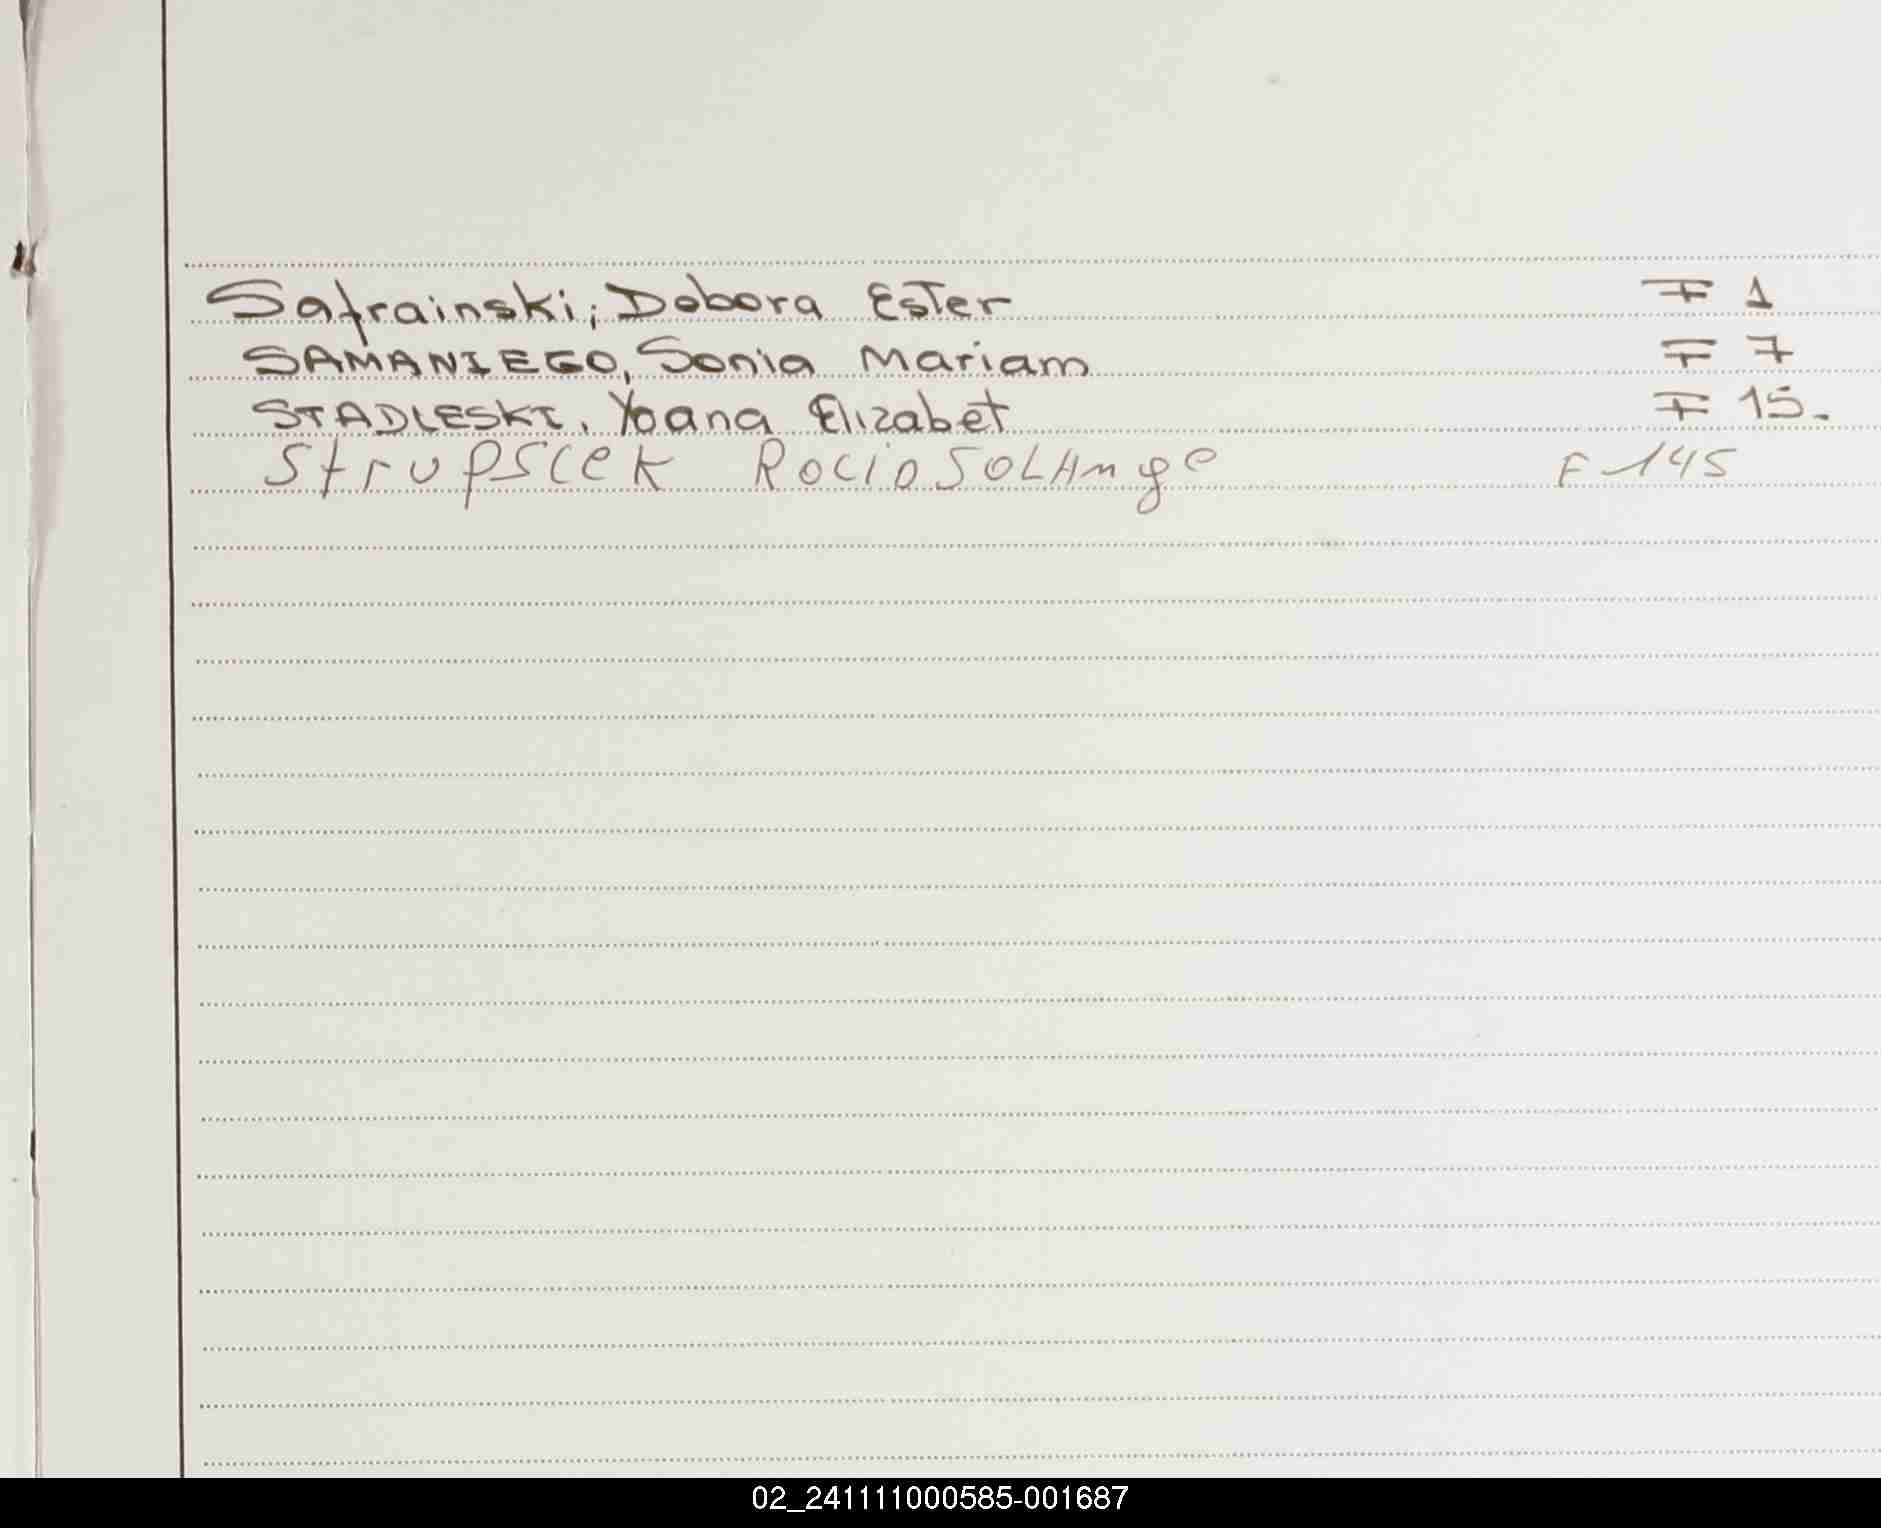 Safrainski, Debora Ester F 1
SAMANIEGO, Sonia Mariam F 7
STADLESKI, Yoana Elizabet F 15.
Strupscek Rocio SOLAnge F 145
02_241111000585-001687